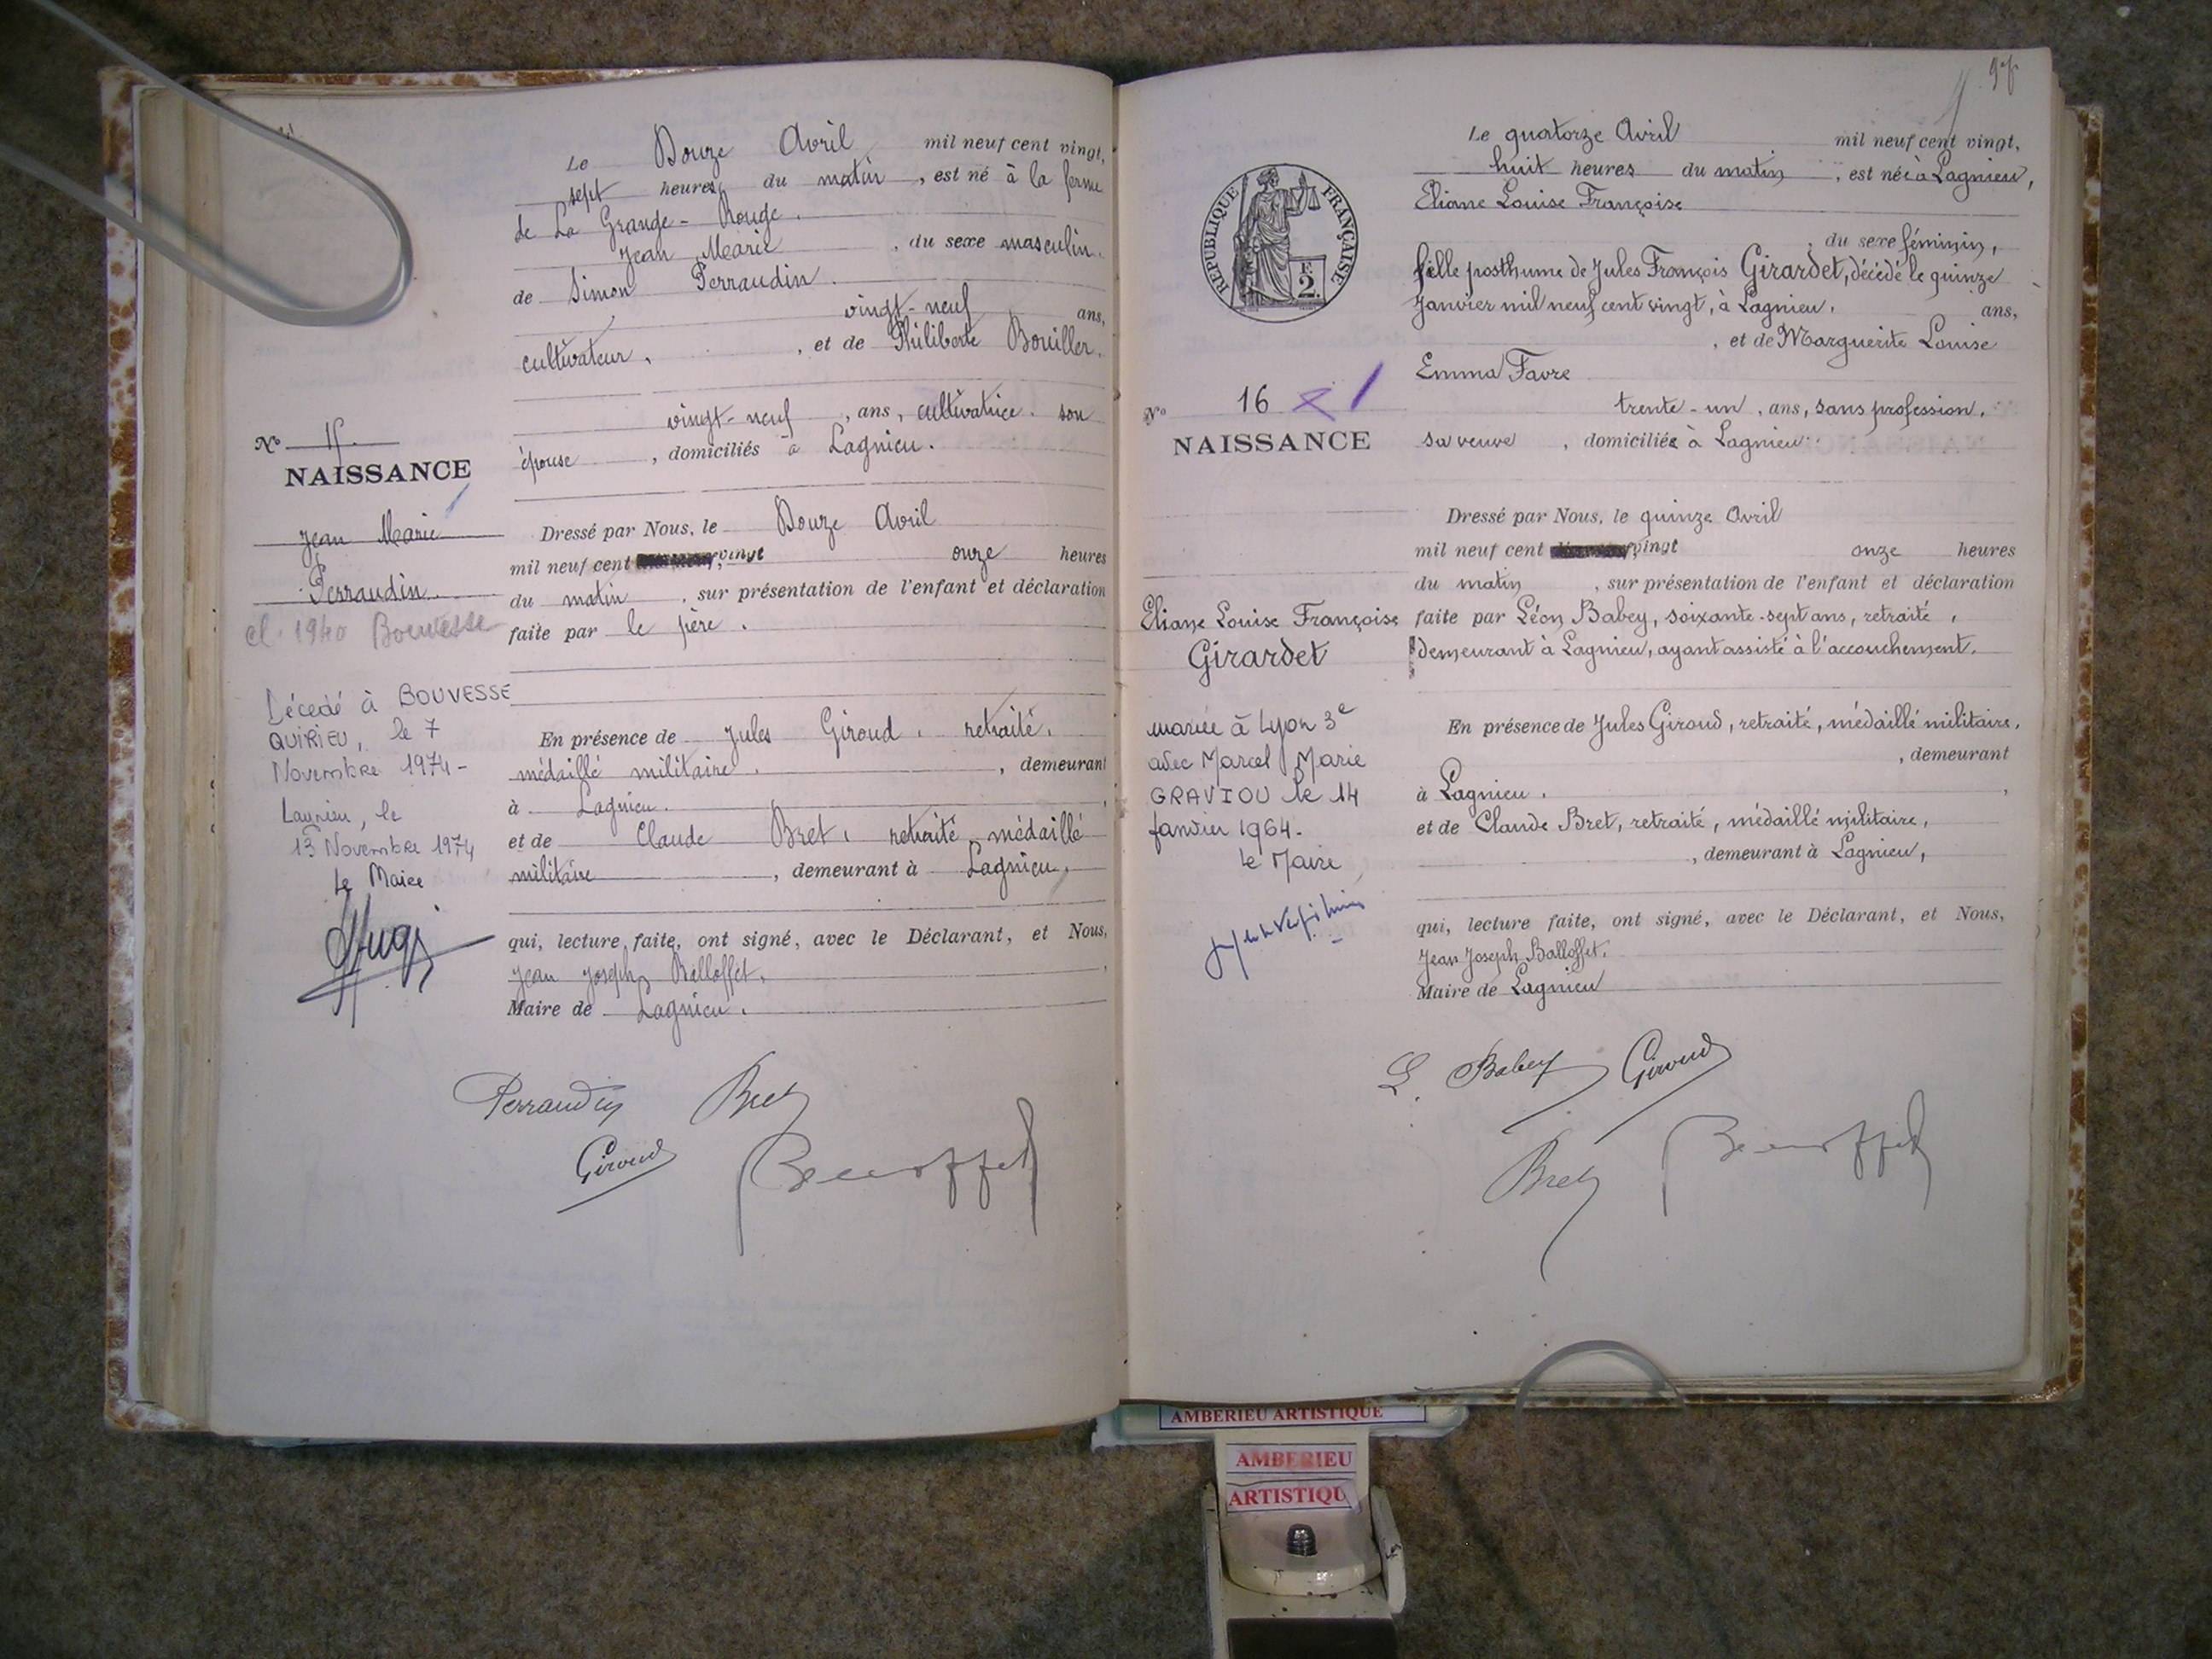 Le Douze Avril mil neuf cent vingt,
sept heures du matin, est né à la ferme
de La Grange-Rouge.
Jean Marie, du sexe masculin.
de Simon Perraudin.
vingt-neuf ans,
cultivateur, et de Philiberte Bouiller.
vingt-neuf, ans, cultivatrice. son
épouse, domiciliés à Lagnieu.
Nº 15.
NAISSANCE
Jean Marie
Perraudin.
cl. 1940 Bouvesse
Décédé à BOUVESSE
QUIRIEU, le 7
Novembre 1974-
Lagnieu, le
13 Novembre 1974
Le Maire
Dressé par Nous, le Douze Avril
mil neuf cent vingt onze heures
du matin, sur présentation de l'enfant et déclaration
faite par le père.
En présence de Jules Giroud, retraité,
médaillé militaire, demeurant
à Lagnieu.
et de Claude Bret, retraité, médaillé
militaire, demeurant à Lagnieu,
qui, lecture faite, ont signé, avec le Déclarant, et Nous,
Jean Joseph Balloffet,
Maire de Lagnieu.
Perraudin Bret
Giroud Balloffet
Le quatorze Avril mil neuf cent vingt,
huit heures du matin, est née à Lagnieu,
Eliane Louise Françoise
, du sexe féminin,
fille posthume de Jules François Girardet, décédé le quinze
Janvier mil neuf cent vingt, à Lagnieu. ans,
, et de Marguerite Louise
Emma Favre
trente-un, ans, sans profession,
sa veuve, domiciliée à Lagnieu.
REPUBLIQUE FRANÇAISE
F.
2.
Nº 16
NAISSANCE
Eliane Louise Françoise
Girardet
mariée à Lyon 3e
avec Marcel Marie
GRAVIOU le 14
janvier 1964.
Le Maire
Dressé par Nous, le quinze Avril
mil neuf cent vingt onze heures
du matin, sur présentation de l'enfant et déclaration
faite par Léon Babey, soixante-sept ans, retraité,
demeurant à Lagnieu, ayant assisté à l'accouchement.
En présence de Jules Giroud, retraité, médaillé militaire,
, demeurant
à Lagnieu.
et de Claude Bret, retraité, médaillé militaire,
, demeurant à Lagnieu,
qui, lecture faite, ont signé, avec le Déclarant, et Nous,
Jean Joseph Balloffet,
Maire de Lagnieu
L. Babey Giroud
Bret Balloffet
AMBERIEU ARTISTIQUE
AMBERIEU
ARTISTIQU